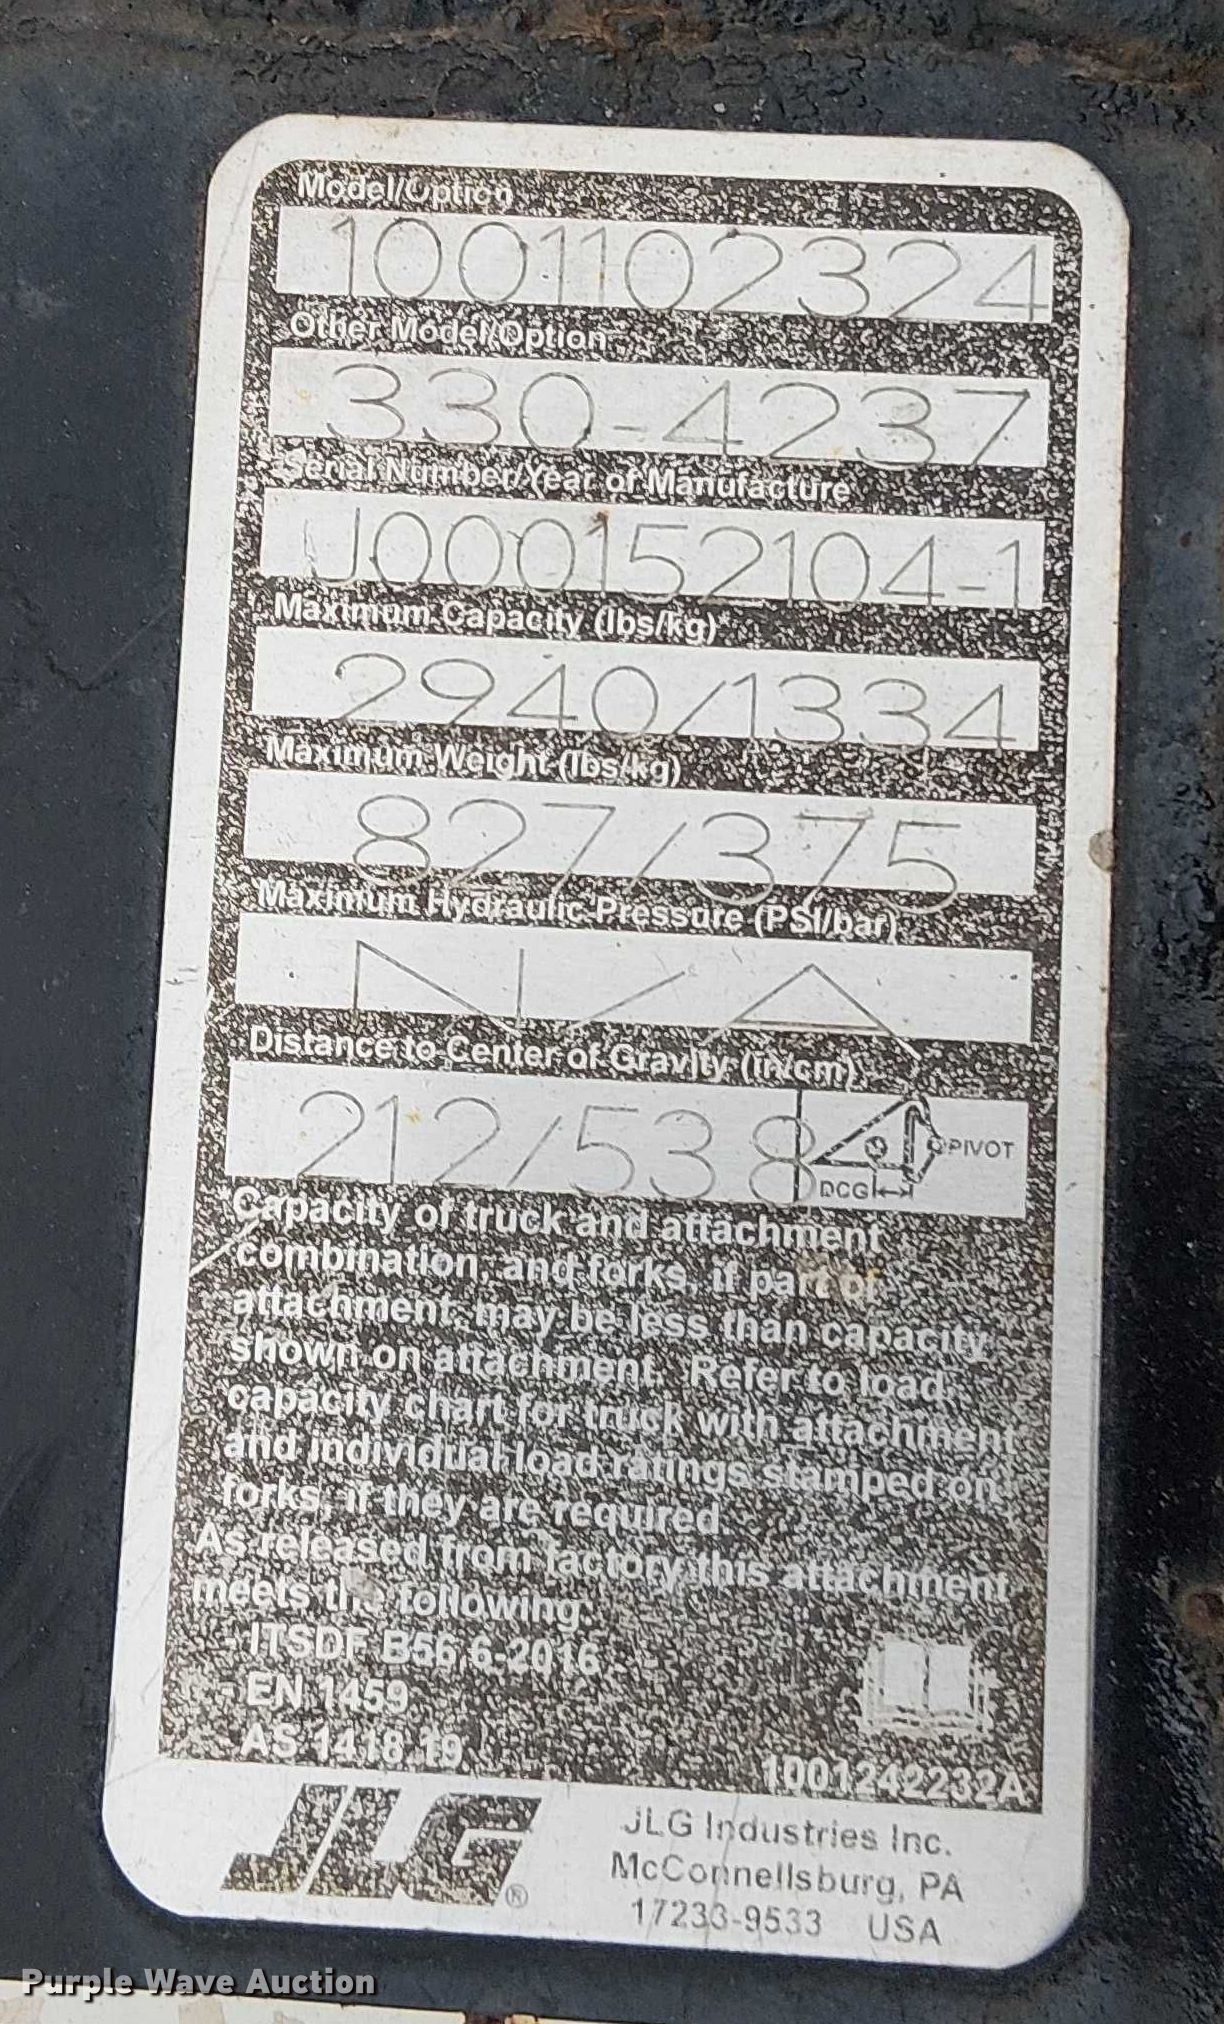 Model/Option
1001102324
Other Model/Option
330-4237
Serial Number/Year of Manufacture
J000152104-1
Maximum Capacity (lbs/kg)*
2940/1334
Maximum Weight (lbs/kg)
827/375
Maximum Hydraulic Pressure (PSI/bar)
N/A
Distance to Center of Gravity (in/cm)
212/538
PIVOT
DCG
*Capacity of truck and attachment
combination, and forks, if part of
attachment, may be less than capacity
shown on attachment. Refer to load
capacity chart for truck with attachment
and individual load ratings stamped on
forks, if they are required.
As released from factory this attachment
meets the following:
ITSDF B56.6-2016
EN 1459
AS 1418.19
1001242232A
JLG®
JLG Industries Inc.
McConnellsburg, PA
17233-9533 USA
Purple Wave Auction